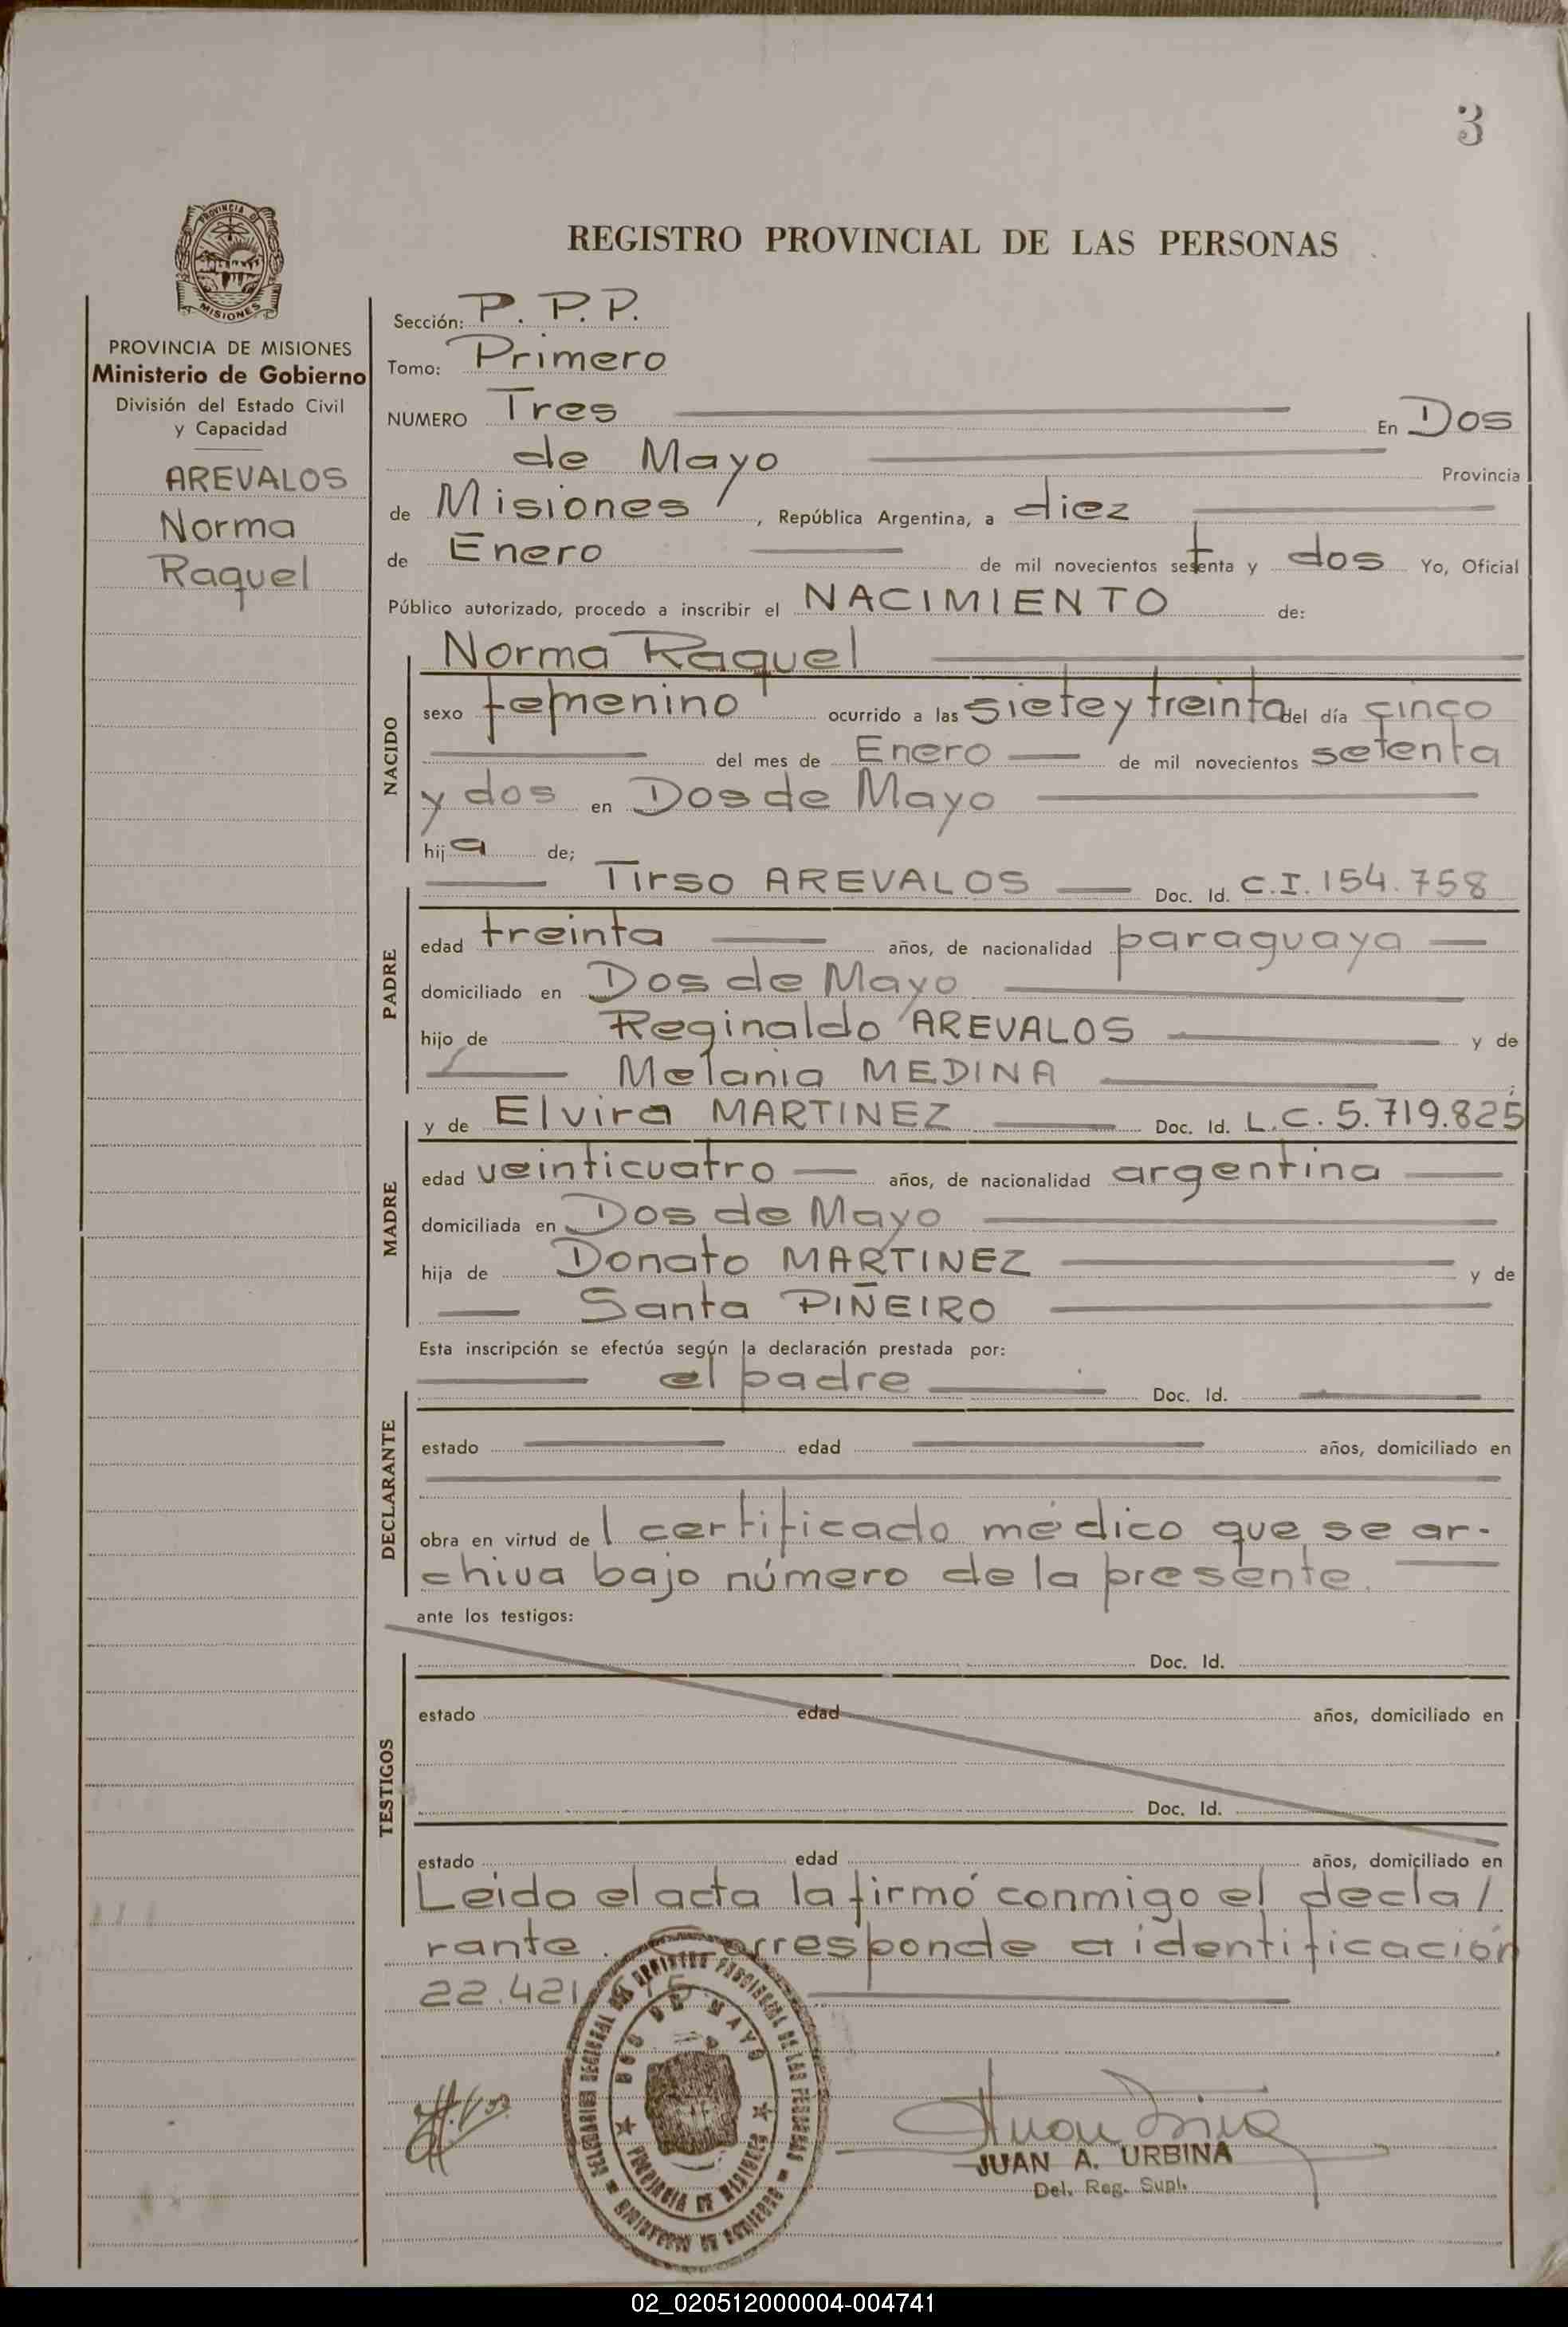 3
PROVINCIA DE
MISIONES
REGISTRO PROVINCIAL DE LAS PERSONAS
PROVINCIA DE MISIONES
Ministerio de Gobierno
División del Estado Civil
y Capacidad
AREVALOS
Norma
Raquel
Sección: P. P. P.
Tomo: Primero
NUMERO Tres En Dos
de Mayo Provincia
de Misiones, República Argentina, a diez
de Enero de mil novecientos setenta y dos Yo, Oficial
Público autorizado, procedo a inscribir el NACIMIENTO de:
NACIDO
Norma Raquel
sexo femenino ocurrido a las siete y treinta del día cinco
del mes de Enero de mil novecientos setenta
y dos en Dos de Mayo
hija de;
PADRE
Tirso AREVALOS Doc. Id. C.I. 154.758
edad treinta años, de nacionalidad paraguaya
domiciliado en Dos de Mayo
hijo de Reginaldo AREVALOS y de
Melania MEDINA
MADRE
y de Elvira MARTINEZ Doc. Id. L.C. 5.719.825
edad veinticuatro años, de nacionalidad argentina
domiciliada en Dos de Mayo
hija de Donato MARTINEZ y de
Santa PIÑEIRO
Esta inscripción se efectúa según la declaración prestada por:
DECLARANTE
el padre Doc. Id.
estado edad años, domiciliado en
obra en virtud de l certificado médico que se ar-
chiva bajo número de la presente.
ante los testigos:
TESTIGOS
Doc. Id.
estado edad años, domiciliado en
Doc. Id.
estado edad años, domiciliado en
Leido el acta la firmó conmigo el decla/
rante. Corresponde a identificación
22.421
DOS DE MAYO
PROVINCIA DE MISIONES
MINISTERIO DE GOBIERNO
JUAN A. URBINA
Del. Reg. Supl.
02_020512000004-004741